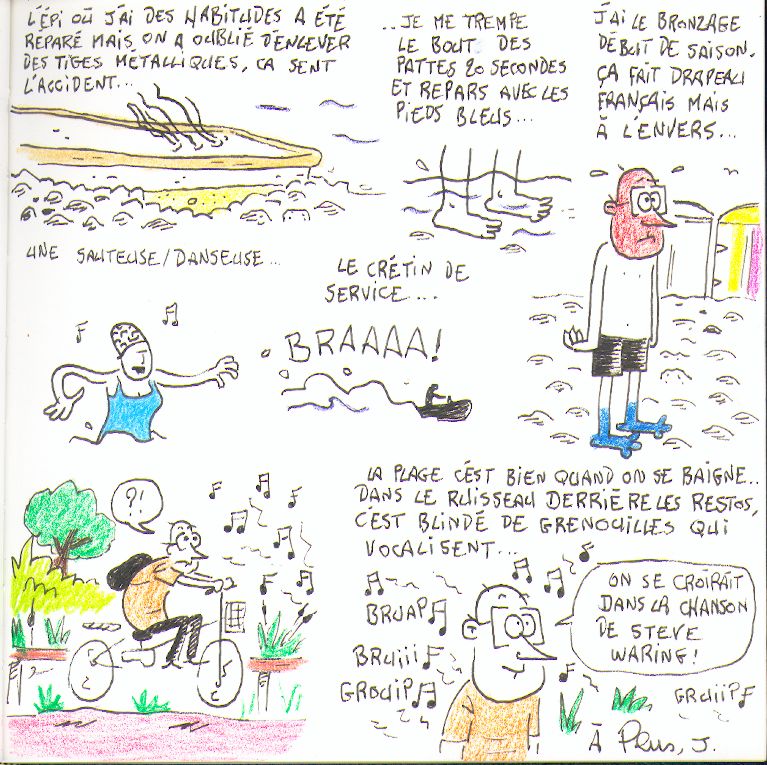 L'ÉPI OÙ J'AI DES HABITUDES A ÉTÉ
REPARÉ MAIS ON A OUBLIÉ D'ENLEVER
DES TIGES METALLIQUES, CA SENT
L'ACCIDENT...
...JE ME TREMPE
LE BOUT DES
PATTES 20 SECONDES
ET REPARS AVEC LES
PIEDS BLEUS...
J'AI LE BRONZAGE
DÉBUT DE SAISON.
ÇA FAIT DRAPEAU
FRANÇAIS MAIS
À L'ENVERS...
UNE SAUTEUSE/DANSEUSE...
LE CRÉTIN DE
SERVICE....
BRAAAA!
?!
LA PLAGE C'ÉST BIEN QUAND ON SE BAIGNE..
DANS LE RUISSEAU DERRIÈRE LES RESTOS,
C'ÉST BLINDÉ DE GRENOUILLES QUI
VOCALISENT...
ON SE CROIRAIT
DANS LA CHANSON
DE STEVE
WARING!
BRUAP
BRUIII
GROUIP
GRUIIP
À PLUS, J.